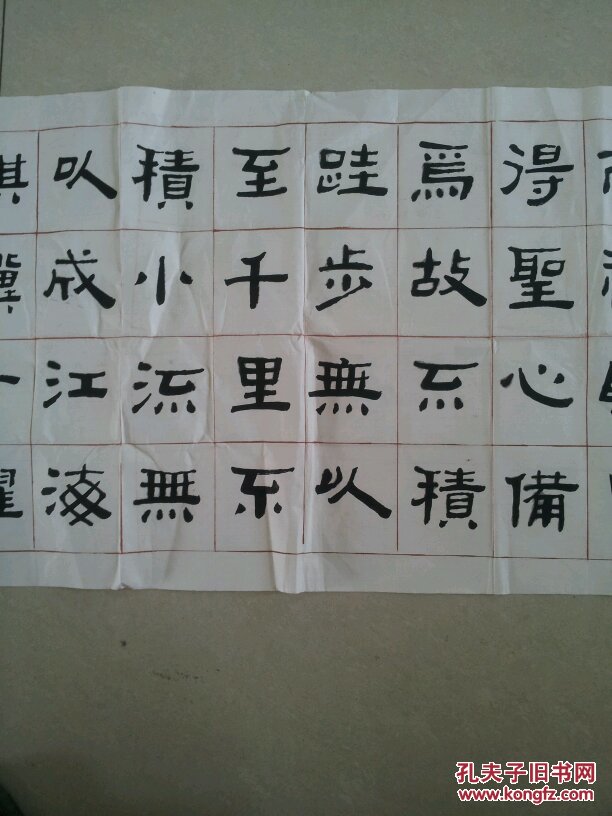 得聖心備
焉故不積
跬步無以
至千里不
積小流無
以成江海
孔夫子旧书网
www.kongfz.com